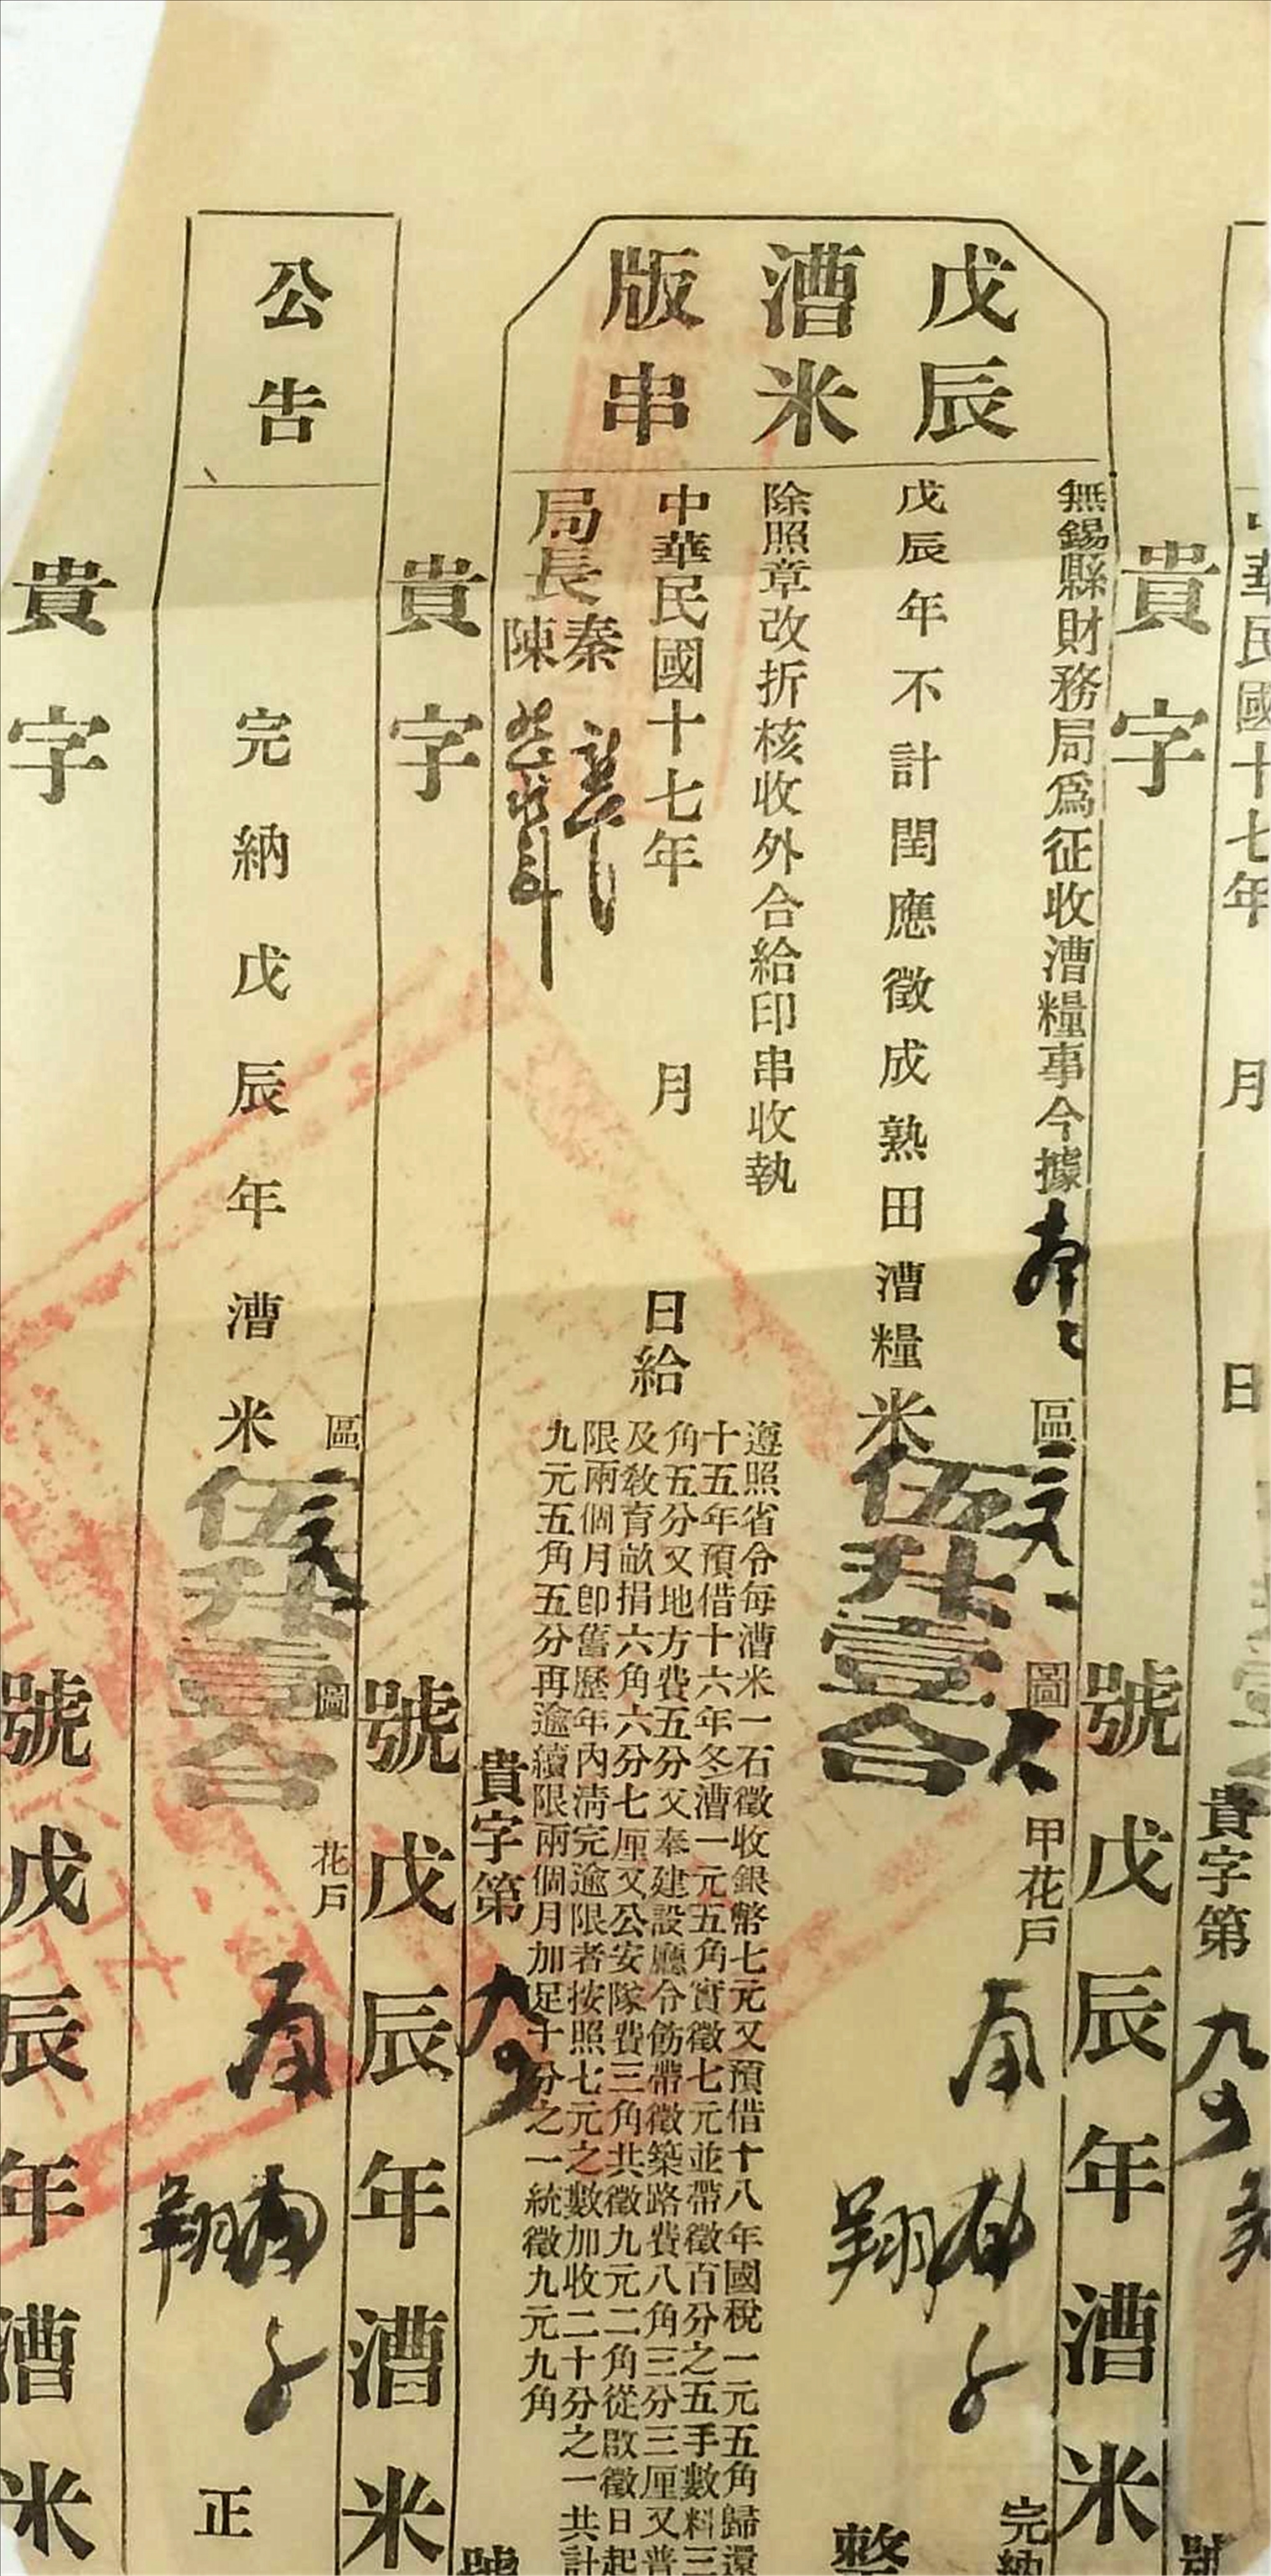 中華民國十七年 月 日
貴字第
貴字 號戊辰年漕米
戊辰
漕米
版串
無錫縣財務局爲征收漕糧事今據 區 圖 甲花戶 完納
戊辰年不計閏應徵成熟田漕糧米伍升壹合 整
除照章改折核收外合給印串收執
中華民國十七年 月 日給
局長 秦
陳
遵照省令每漕米一石徵收銀幣七元又預借十八年國稅一元五角歸還
十五年預借十六年冬漕一元五角實徵七元並帶徵百分之五手數料三
角五分又地方費五分又奉建設廳令飭帶徵築路費八角三分三厘又普
及教育畝捐六角六分七厘又公安隊費三角共徵九元二角從啟徵日起
限兩個月即舊歷年內清完逾限者按照七元之數加收二十分之一共計
九元五角五分再逾續限兩個月加足十分之一統徵九元九角
貴字第 號
貴字 號戊辰年漕米
公告
區 圖 花戶
完納戊辰年漕米伍升壹合 正
貴字 號戊辰年漕米